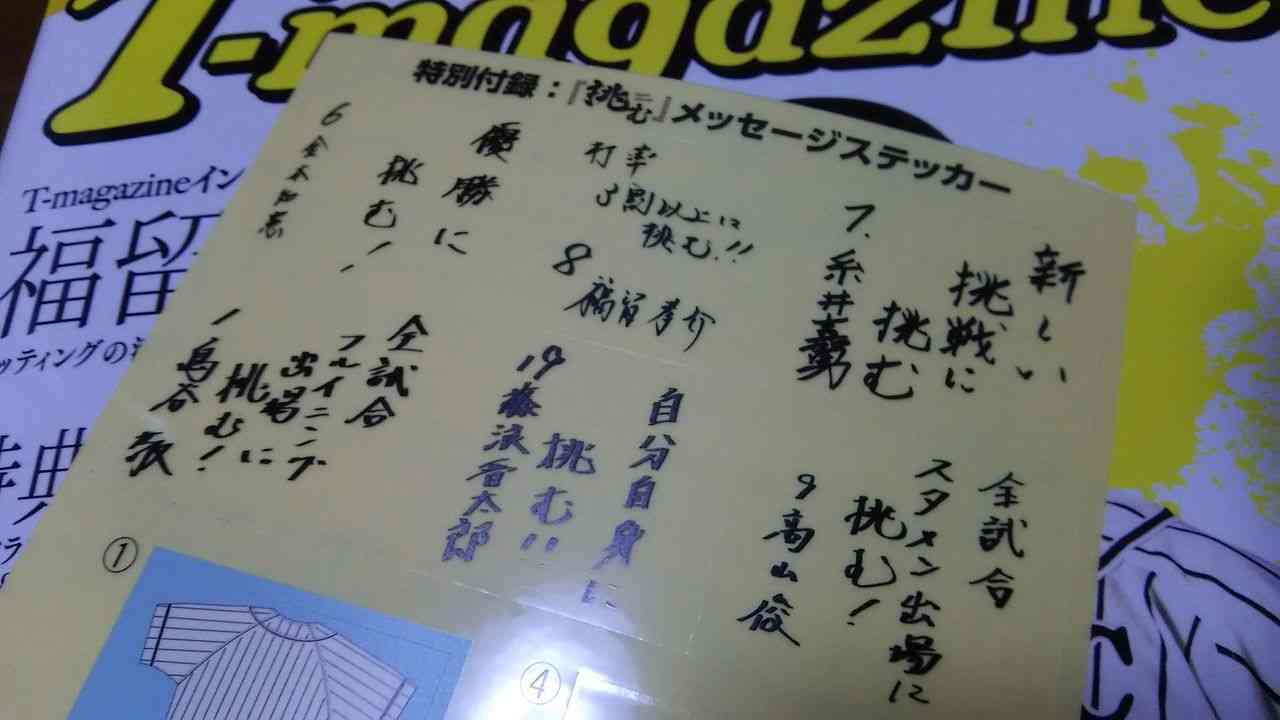 T-magazine
特別付録：『挑む』メッセージステッカー
新しい
挑戦に
挑む
7. 糸井嘉男
打率
3割以上に
挑む!!
8
福留孝介
優勝に
挑む!
6 金本知憲
全試合
スタメン出場に
挑む!
9 高山俊
自分自身に
挑む!!
19 藤浪晋太郎
全試合
フルイニング
出場に
挑む!
1 鳥谷敬
T-magazineイン
福留
ッティングの
特典
①
④